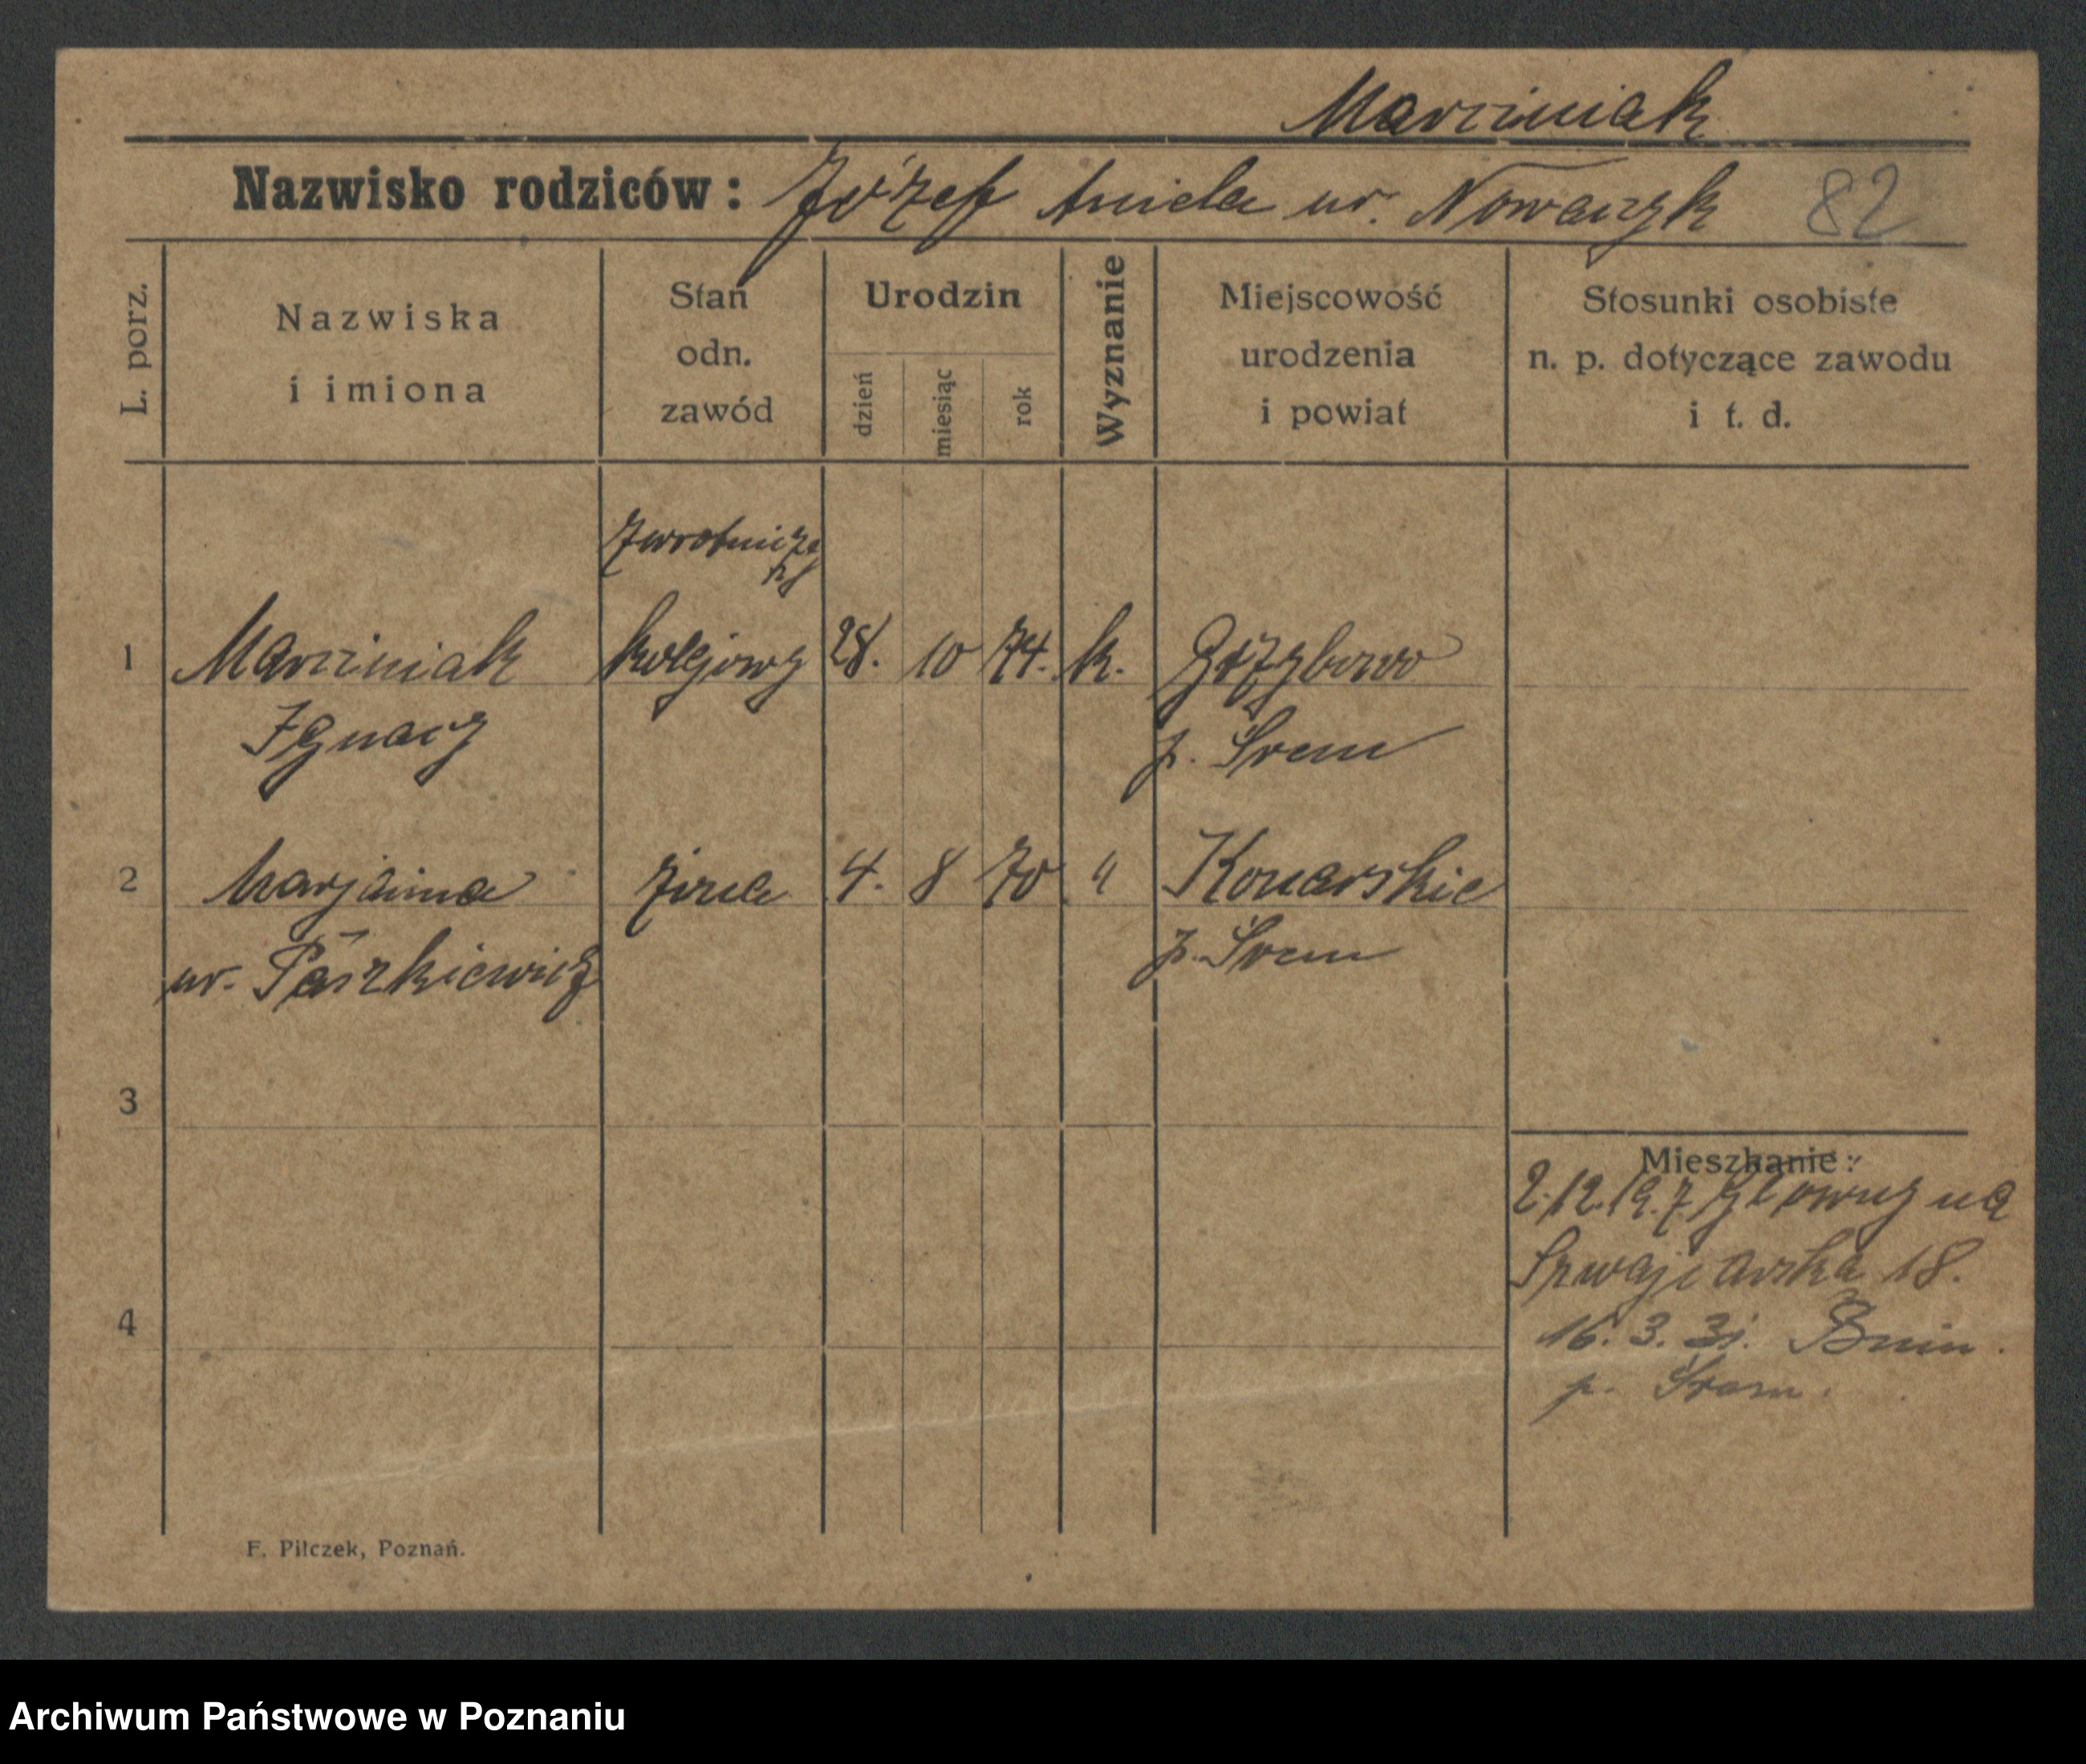 Marciniak
Nazwisko rodziców: Józef Aniela ur. Nowaczyk 82
L. porz.
Nazwiska
i imiona
Stan
odn.
zawód
Urodzin
dzień
miesiąc
rok
Wyznanie
Miejscowość
urodzenia
i powiat
Stosunki osobiste
n. p. dotyczące zawodu
i t. d.
zwrotniczy
1 Marciniak kolejowy 28. 10 74. k. Grzybowo
Ignacy p. Śrem
2 Marjanna żona 4. 8 70 " Konarskie
ur. Paszkiewicz p. Śrem
3
Mieszkanie:
2.12.19. z Główny na
Szwajcarska 18.
4
16. 3. 31. Bnin.
p. Śrem.
F. Pilczek, Poznań.
Archiwum Państwowe w Poznaniu